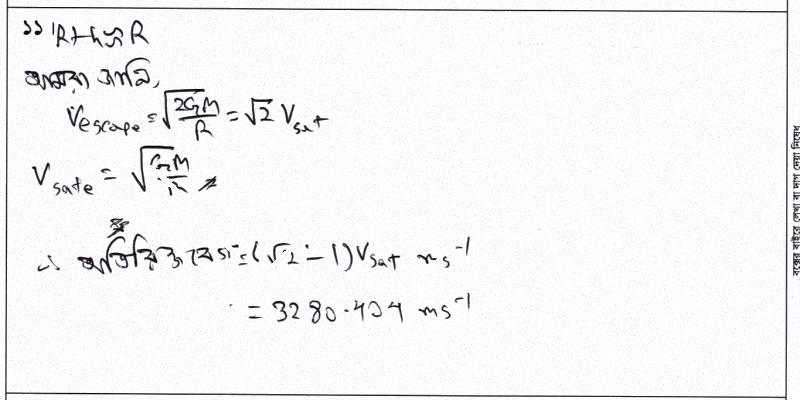 ∴ R+h≈R
আমরা জানি,
V_escape = √(2GM/R) = √2 V_sat
V_sate = √(GM/R)
∴ অতিরিক্ত বেগ = (√2 - 1) V_sat ms⁻¹
= 3280.404 ms⁻¹
বক্সের বাইরে লেখা বা দাগ দেয়া নিষেধ